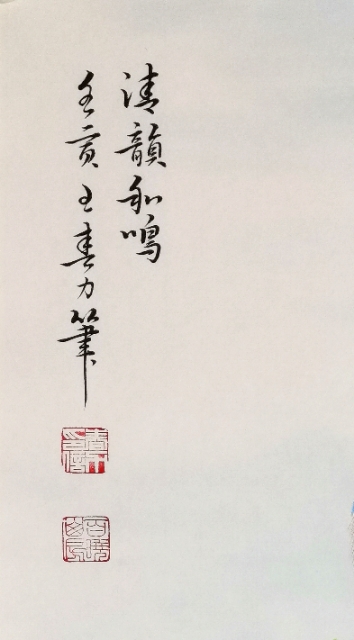 清韻和鳴
壬寅王春力筆